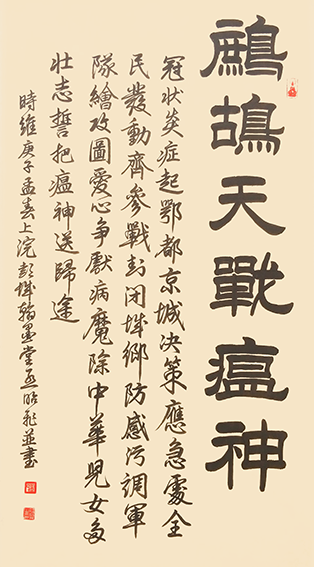 鷓鴣天戰瘟神
冠状炎症起鄂都京城决策應急處全
民發動齊參戰封闭城鄉防感污調軍
隊繪攻圖愛心争獻病魔除中華児女多
壮志誓把瘟神送歸途
時維庚子孟春上浣彭城翰墨堂孟昭彪並書